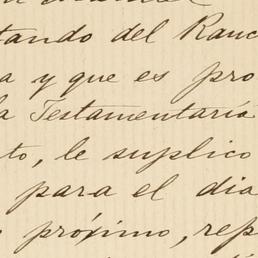 tando del Ranc
a y que es pro
la Testamentaría
to, le suplico
para el dia
próximo, rep